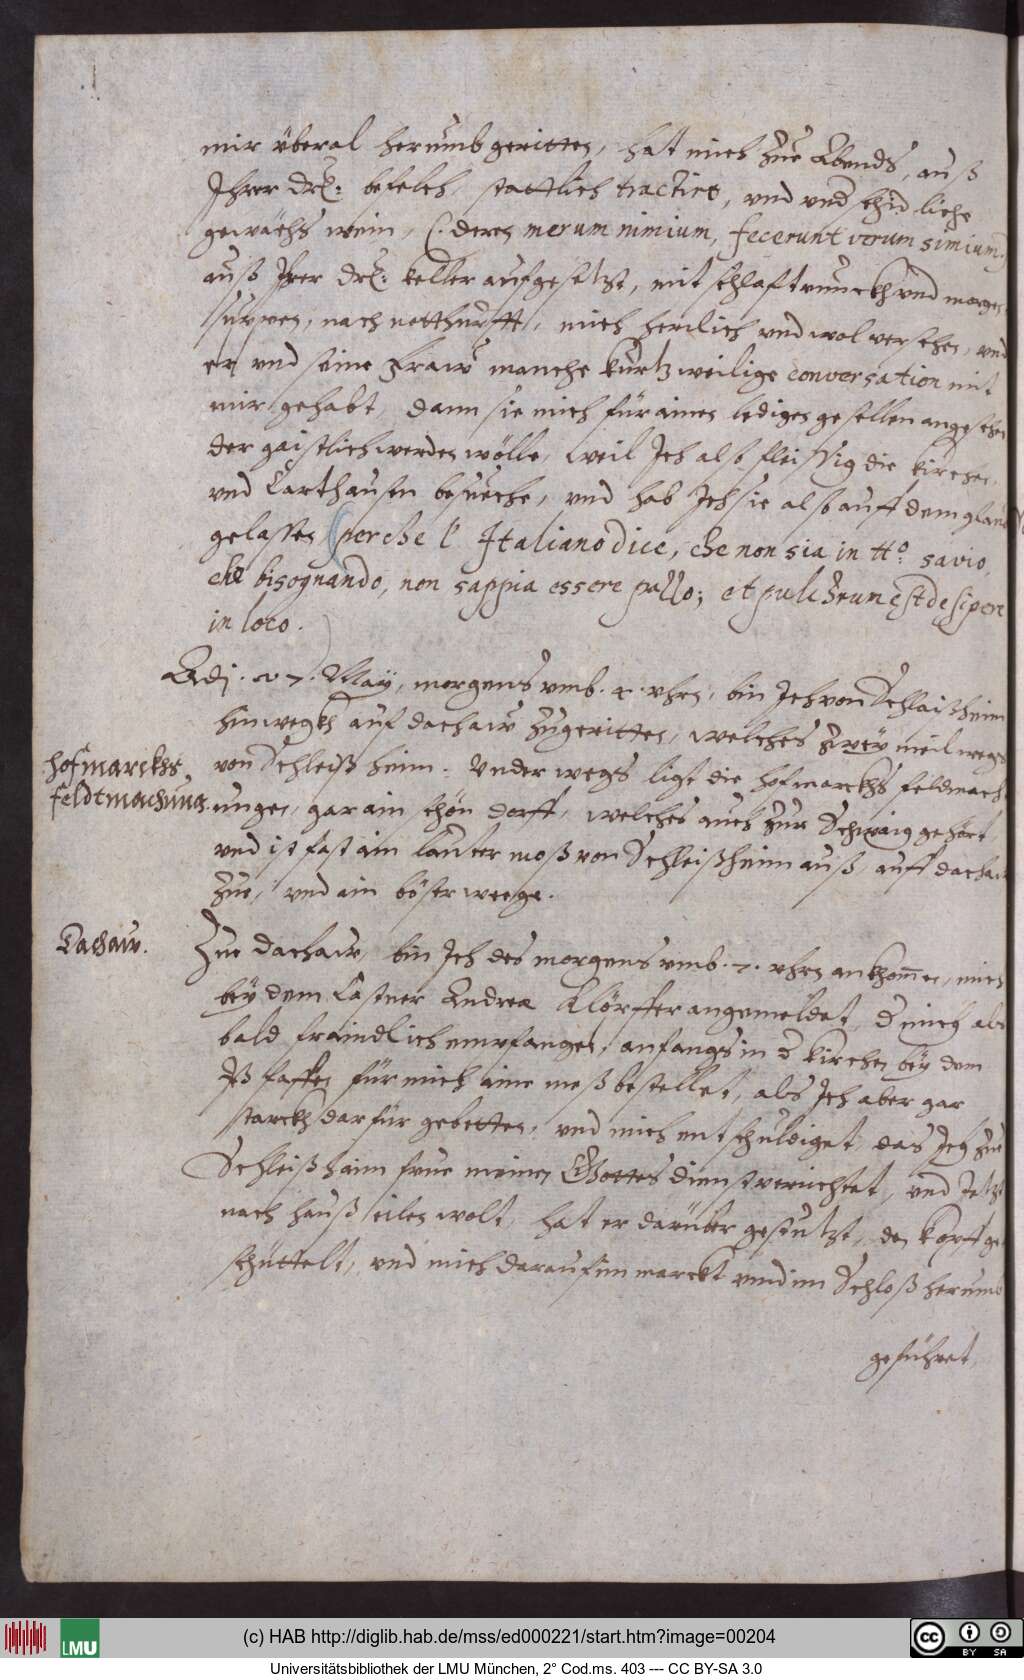 mir überal herumb geritten, hatt mich zue Abends, auß
Ihrer Drl: befelch, stattlich tractirt, vnd vndschidliche
gewächs wein, (: deren merum nimium, fecerunt verum simium:)
auß Ihrer Drl: keller aufgesetzt, mit schlaftrunckh vnd morgen
suppen, nach notthurfft, mich herrlich vnd wol versehen, vnd
er vnd seine Fraw manche kurtzweilige conversation mit
mir gehabt, dann sie mich für ainen ledigen gesellen angesehen
der gaistlich werden wölle, weil Ich also fleissig die kirchen,
vnd Carthausen besueche, vnd hab Ich sie also auff dem glaub
gelassen (perche l' Italiano dice, che non sia in tto: savio,
che bisognando, non sappia essere pallo; et pulchrum est desipere
in loco.)
Adj. 27. May, morgens vmb. 4. vhrn, bin Ich von Schlaißheim
hinwegkh auf dachaw zugeritten, welches zwey meil wegs
von Schleißheim: Vnderwegs ligt die hofmarckhs feldmach
hofmarckhs
feldtmachung.
ungen, gar ain schön dorff, welches auch zur Schwaig gehört,
vnd ist fast ain lauter moß von Schleißheim auß, auff dachaw
zue, vnd ain böser weege.
Dachaw.
Zue Dachaw, bin Ich des morgens vmb. 7. vhrn ankhommen, mich
bey dem Castner Andrea Klörffer angemeldet, d mich als
bald fraindlich empfangen, anfangs in d kirchen bey dem
Pfaffen für mich aine meß bestellet, als Ich aber gar
starckh darfür gebetten, vnd mich entschuldiget, das Ich zue
Schleißhaim frue meinen Gottesdienst verrichtet, vnd Jetzt
nach hauß eilen wolt, hat er darüber gestutzt, den kopff ge
schüttelt, vnd mich darauf im marckt vnd im Schloß herumb
geführet,
(c) HAB http://diglib.hab.de/mss/ed000221/start.htm?image=00204
LMU
CC BY SA
Universitätsbibliothek der LMU München, 2° Cod.ms. 403 --- CC BY-SA 3.0